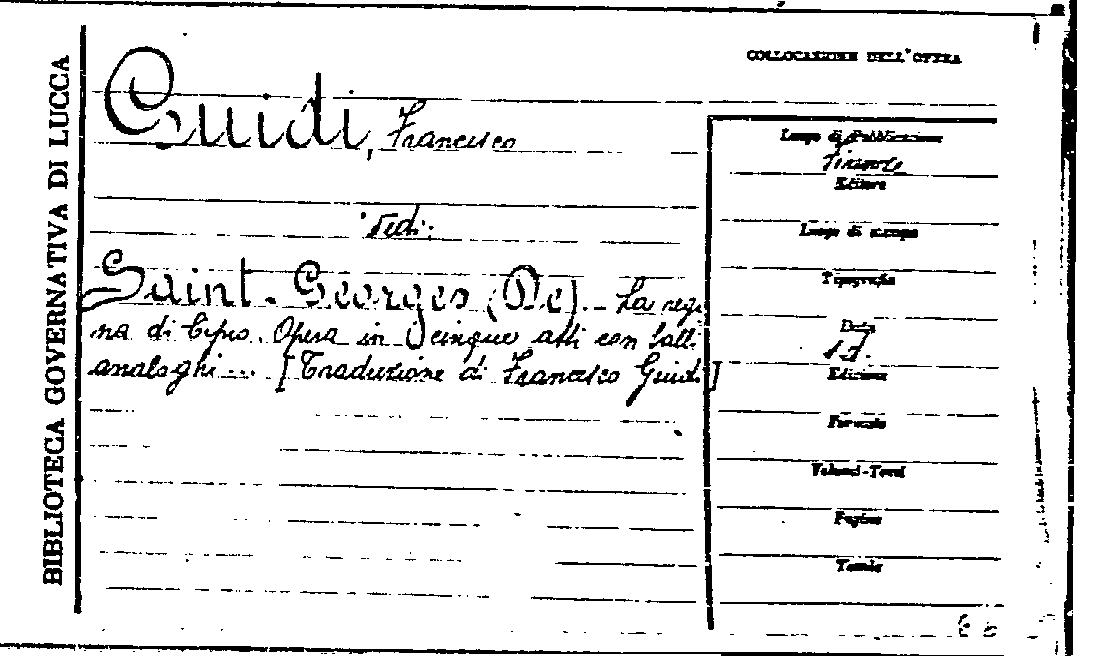 BIBLIOTECA GOVERNATIVA DI LUCCA
COLLOCAZIONE DELL'OPERA
Guidi, Francesco
Vedi:
Saint-Georges (De). La regi
na di Cipro. Opera in cinque atti con balli
analoghi... [Traduzione di Francesco Guidi]
Luogo di Pubblicazione
Firenze
Editore
Luogo di stampa
Tipografia
Data
s.d.
Edizione
Formato
Volumi-Tomi
Pagine
Tavole